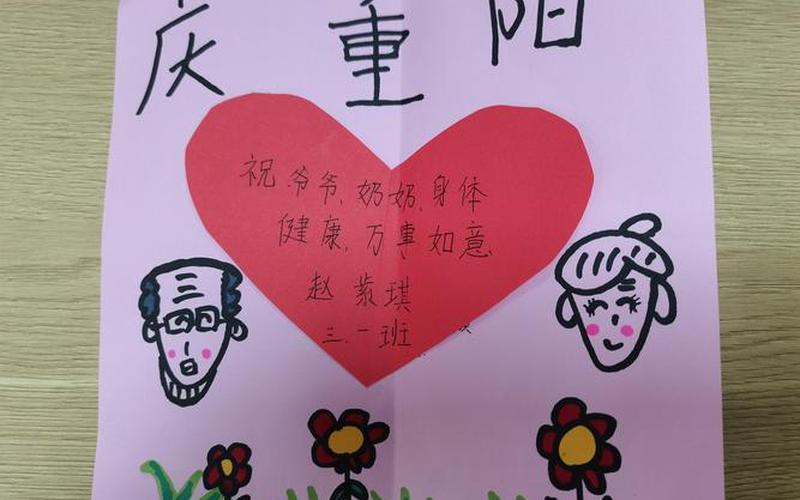 庆重阳
祝爷爷、奶奶、身体
健康,万事如意
赵紫琪
三、一班